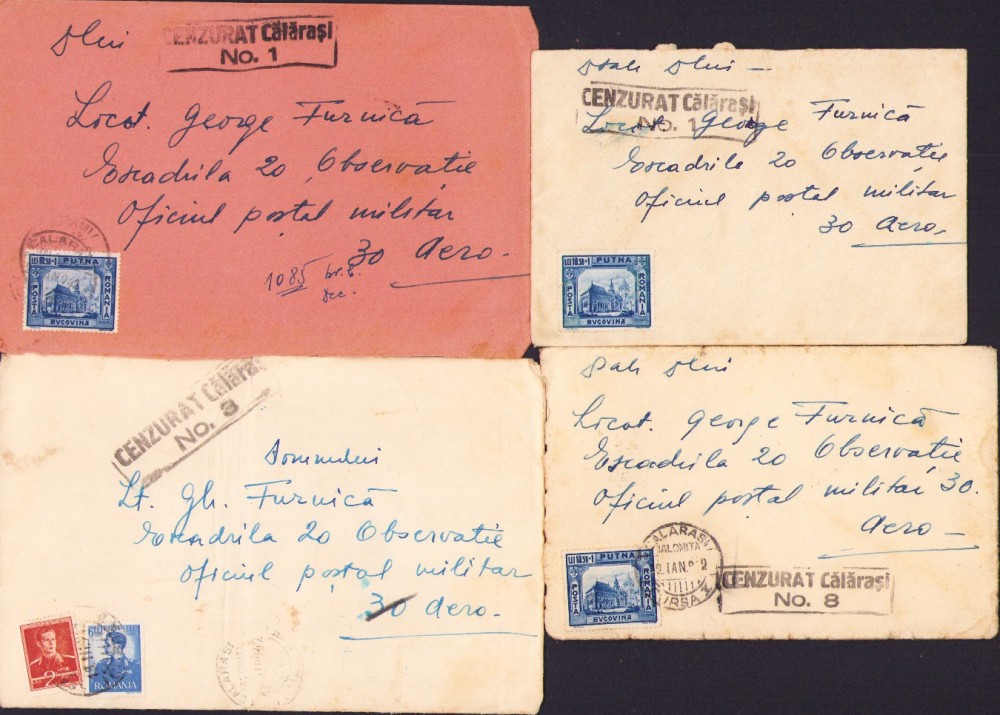 Dlui
CENZURAT Călărași
No. 1
Locot. George Furnică
Escadrila 20 Observație
Oficiul poștal militar
30 Aero.
1085
Dec.
PUTNA
POSTA
ROMANIA
BUCOVINA
Dlui
CENZURAT Călărași
No. 1
Locot. George Furnică
Escadrila 20 Observație
Oficiul poștal militar
30 Aero.
PUTNA
POSTA
ROMANIA
BUCOVINA
CENZURAT Călăraș
No. 3
Domnului
Lt. Gh. Furnică
Escadrila 20 Observație
Oficiul poștal militar
30 Aero.
2
ROMANIA
CALARASI
Dlui
Locot. George Furnică
Escadrila 20 Observație
Oficiul poștal militar 30.
Aero
CALARASI
IALOMITA
PUTNA
POSTA
ROMANIA
BUCOVINA
CENZURAT Călărași
No. 8